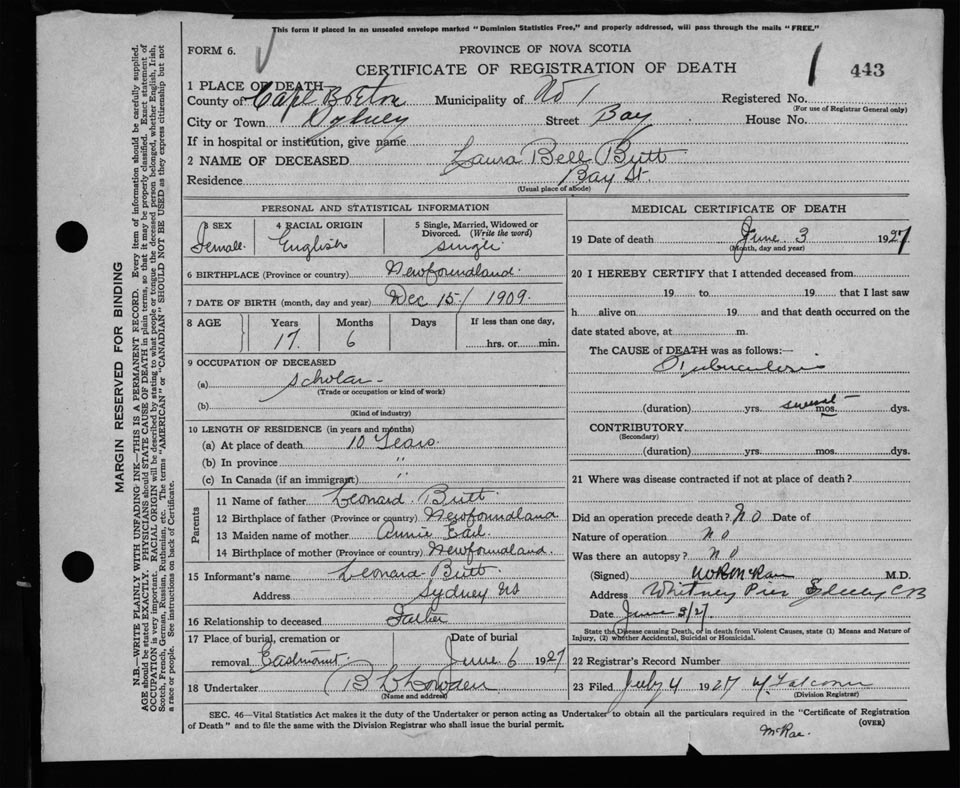 This form if placed in an unsealed envelope marked "Dominion Statistics Free," and properly addressed, will pass through the mails "FREE."
FORM 6.
PROVINCE OF NOVA SCOTIA
CERTIFICATE OF REGISTRATION OF DEATH
1 443
1 PLACE OF DEATH
County of Cape Breton Municipality of No 1 Registered No.
(For use of Registrar General only)
City or Town Sydney Street Bay House No.
If in hospital or institution, give name
2 NAME OF DECEASED Laura Bell Butt
Residence Bay St.
(Usual place of abode)
PERSONAL AND STATISTICAL INFORMATION
3 SEX 4 RACIAL ORIGIN 5 Single, Married, Widowed or Divorced. (Write the word)
Female. English single
6 BIRTHPLACE (Province or country) Newfoundland.
7 DATE OF BIRTH (month, day and year) Dec 15/1909.
8 AGE Years Months Days If less than one day,
17 6 hrs. or min.
9 OCCUPATION OF DECEASED
(a) Scholar
(Trade or occupation or kind of work)
(b)
(Kind of industry)
10 LENGTH OF RESIDENCE (in years and months)
(a) At place of death 10 Years.
(b) In province "
(c) In Canada (if an immigrant) "
Parents
11 Name of father Leonard Butt
12 Birthplace of father (Province or country) Newfoundland
13 Maiden name of mother Annie Earl
14 Birthplace of mother (Province or country) Newfoundland.
15 Informant's name Leonard Butt.
Address Sydney NS
16 Relationship to deceased Father
17 Place of burial, cremation or removal Eastmount Date of burial June 6 1927
18 Undertaker
(Name and address)
MEDICAL CERTIFICATE OF DEATH
19 Date of death June 3 1927
(Month, day and year)
20 I HEREBY CERTIFY that I attended deceased from
19 to 19 that I last saw
h alive on 19 and that death occurred on the
date stated above, at m.
The CAUSE of DEATH was as follows:—
Tuberculosis
(duration) yrs. several mos. dys.
CONTRIBUTORY
(Secondary)
(duration) yrs. mos. dys.
21 Where was disease contracted if not at place of death?
Did an operation precede death? No Date of
Nature of operation No
Was there an autopsy? No
(Signed) McRae M.D.
Address Whitney Pier Sydney CB
Date June 3/27
State the Disease causing Death, or in death from Violent Causes, state (1) Means and Nature of
Injury, (2) whether Accidental, Suicidal or Homicidal.
22 Registrar's Record Number
23 Filed July 4 1927
(Division Registrar)
SEC. 46—Vital Statistics Act makes it the duty of the Undertaker or person acting as Undertaker to obtain all the particulars required in the "Certificate of Registration
of Death" and to file the same with the Division Registrar who shall issue the burial permit.
(OVER)
McRae.
MARGIN RESERVED FOR BINDING
N.B.—WRITE PLAINLY WITH UNFADING INK—THIS IS A PERMANENT RECORD. Every item of information should be carefully supplied.
AGE should be stated EXACTLY. PHYSICIANS should STATE CAUSE OF DEATH in plain terms, so that it may be properly classified. Exact statement of
OCCUPATION is very important. RACIAL ORIGIN will be described by stating to what people or tongue the deceased person belonged, whether English, Irish,
Scotch, French, German, Russian, Ruthenian, etc. The terms "AMERICAN" or "CANADIAN" SHOULD NOT BE USED as they express citizenship but not
a race or people. See instructions on back of Certificate.